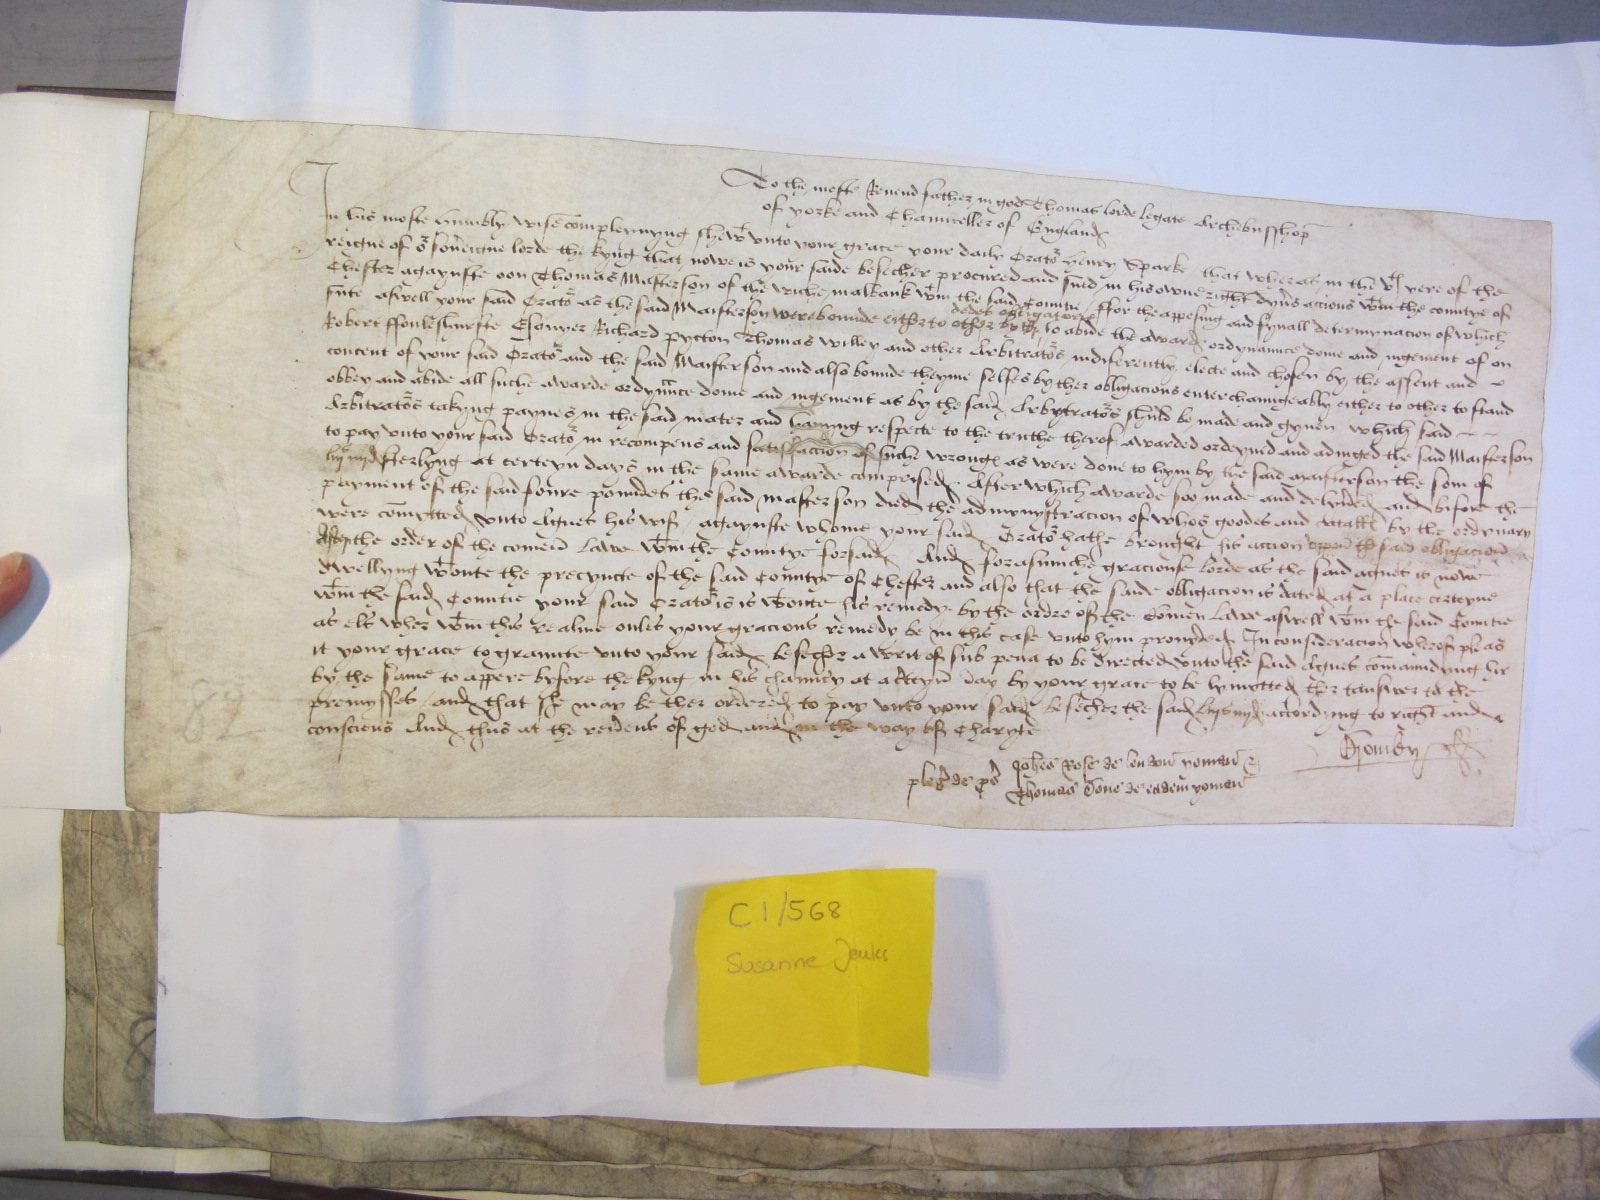 To the moste Revend father in god Thomas lorde legate Archebusshop
of yorke and Chauncellor of England
In his moste humbly wise compleynyng shewt unto your grace your daily Orator Henry Sparke that wheras in the vjth yere of the
reigne of or soveigne lorde the kyng that nowe is your saide besecher procured and sued in his owne right dyvs accions wtin the countye of
Chester agaynste oon Thomas Masterson of the wiche malbank wtin the said Countie ffor the appesing and fynall determynacion of which
sute aswell your said Orator as the said Maisterson were bounde either to other by dedes obligatory to abide the awarde ordynaunce dome and jugement of on
Robert ffouleshurste Esquyer Richard pycton Thomas willey and other Arbitratos indifferently electe and chosen by the assent and
concent of your said Orator and the said Maisterson and also bounde theyme selfes by ther obligacions enterchaungeably either to other to stand
obbey and abide all suche awarde ordynnce dome and jugement as by the said Arbytratos shuld be made and gyven which said
Arbitratos takyng paynes in the said mater and havyng respecte to the truthe therof awarded ordeynd and adjuged the said Maisterson
to pay unto your said Orator in recompens and satisfaccion of suche wronges as were done to hym by the said maisterson the som of
sterlyng at certeyn days in the same awarde comprised After which awarde soo made and delyvered and bifore the
payment of the said foure poundes the said masterson died the admynystracion of whos goodes and catalls by the ordynary
were comytted unto Agnes his wif agaynste whome your said Orator hathe brought his accion uppon the said obligacion
After the order of the comen Lawe wtin the Countye forsaid And forasmuche graciouse lorde as the said agnes is nowe
dwellyng wtoute the precyncte of the said Countye of Chester and also that the saide obligacion is dated at a place certeyne
wtin the said Countie your said Orator is wtoute his remedy by the ordre of the Comen Lawe aswell wtin the said Countie
as els wher wtin this realme onles your gracious remedy be in this case unto hym provyded In consideracion wherof pleas
it your grace to graunte unto your said besecher a writ of sub pena to be directed unto the said Agnes comaundyng hir
by the same to appere byfore the kyng in his chauncy at a cteyn day by your grace to be lymytted ther tanswer to the
premysses and that she may be ther ordered to pay unto your said besecher the said accordyng to right and
consciens And thus at the revdens of god and in the way of Charyte
pleg de ps Johes Rose de london yoman
Thomas Done de eadem yoman
82
C1/568
Susanne Jenks